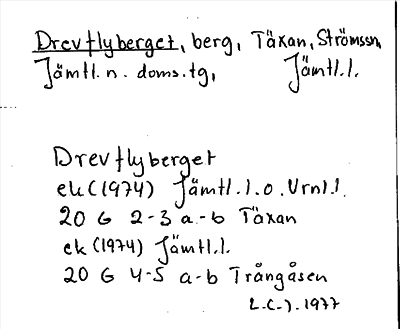 Drevflyberget, berg, Täxan, Strömssn,
Jämtl.n. doms.tg, Jämtl.l.
Drevflyberget
ek(1974) Jämtl.l.o.Vrnl.l.
20 G 2-3 a-b Täxan
ek (1974) Jämtl.l.
20 G 4-5 a-b Trångåsen
L.C.J. 1977